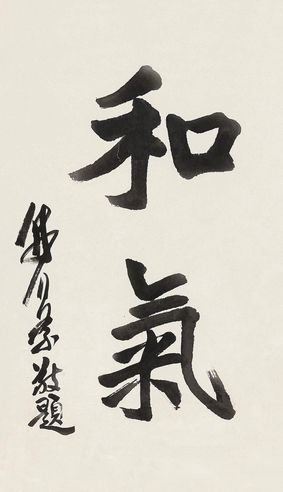 和氣
敬題